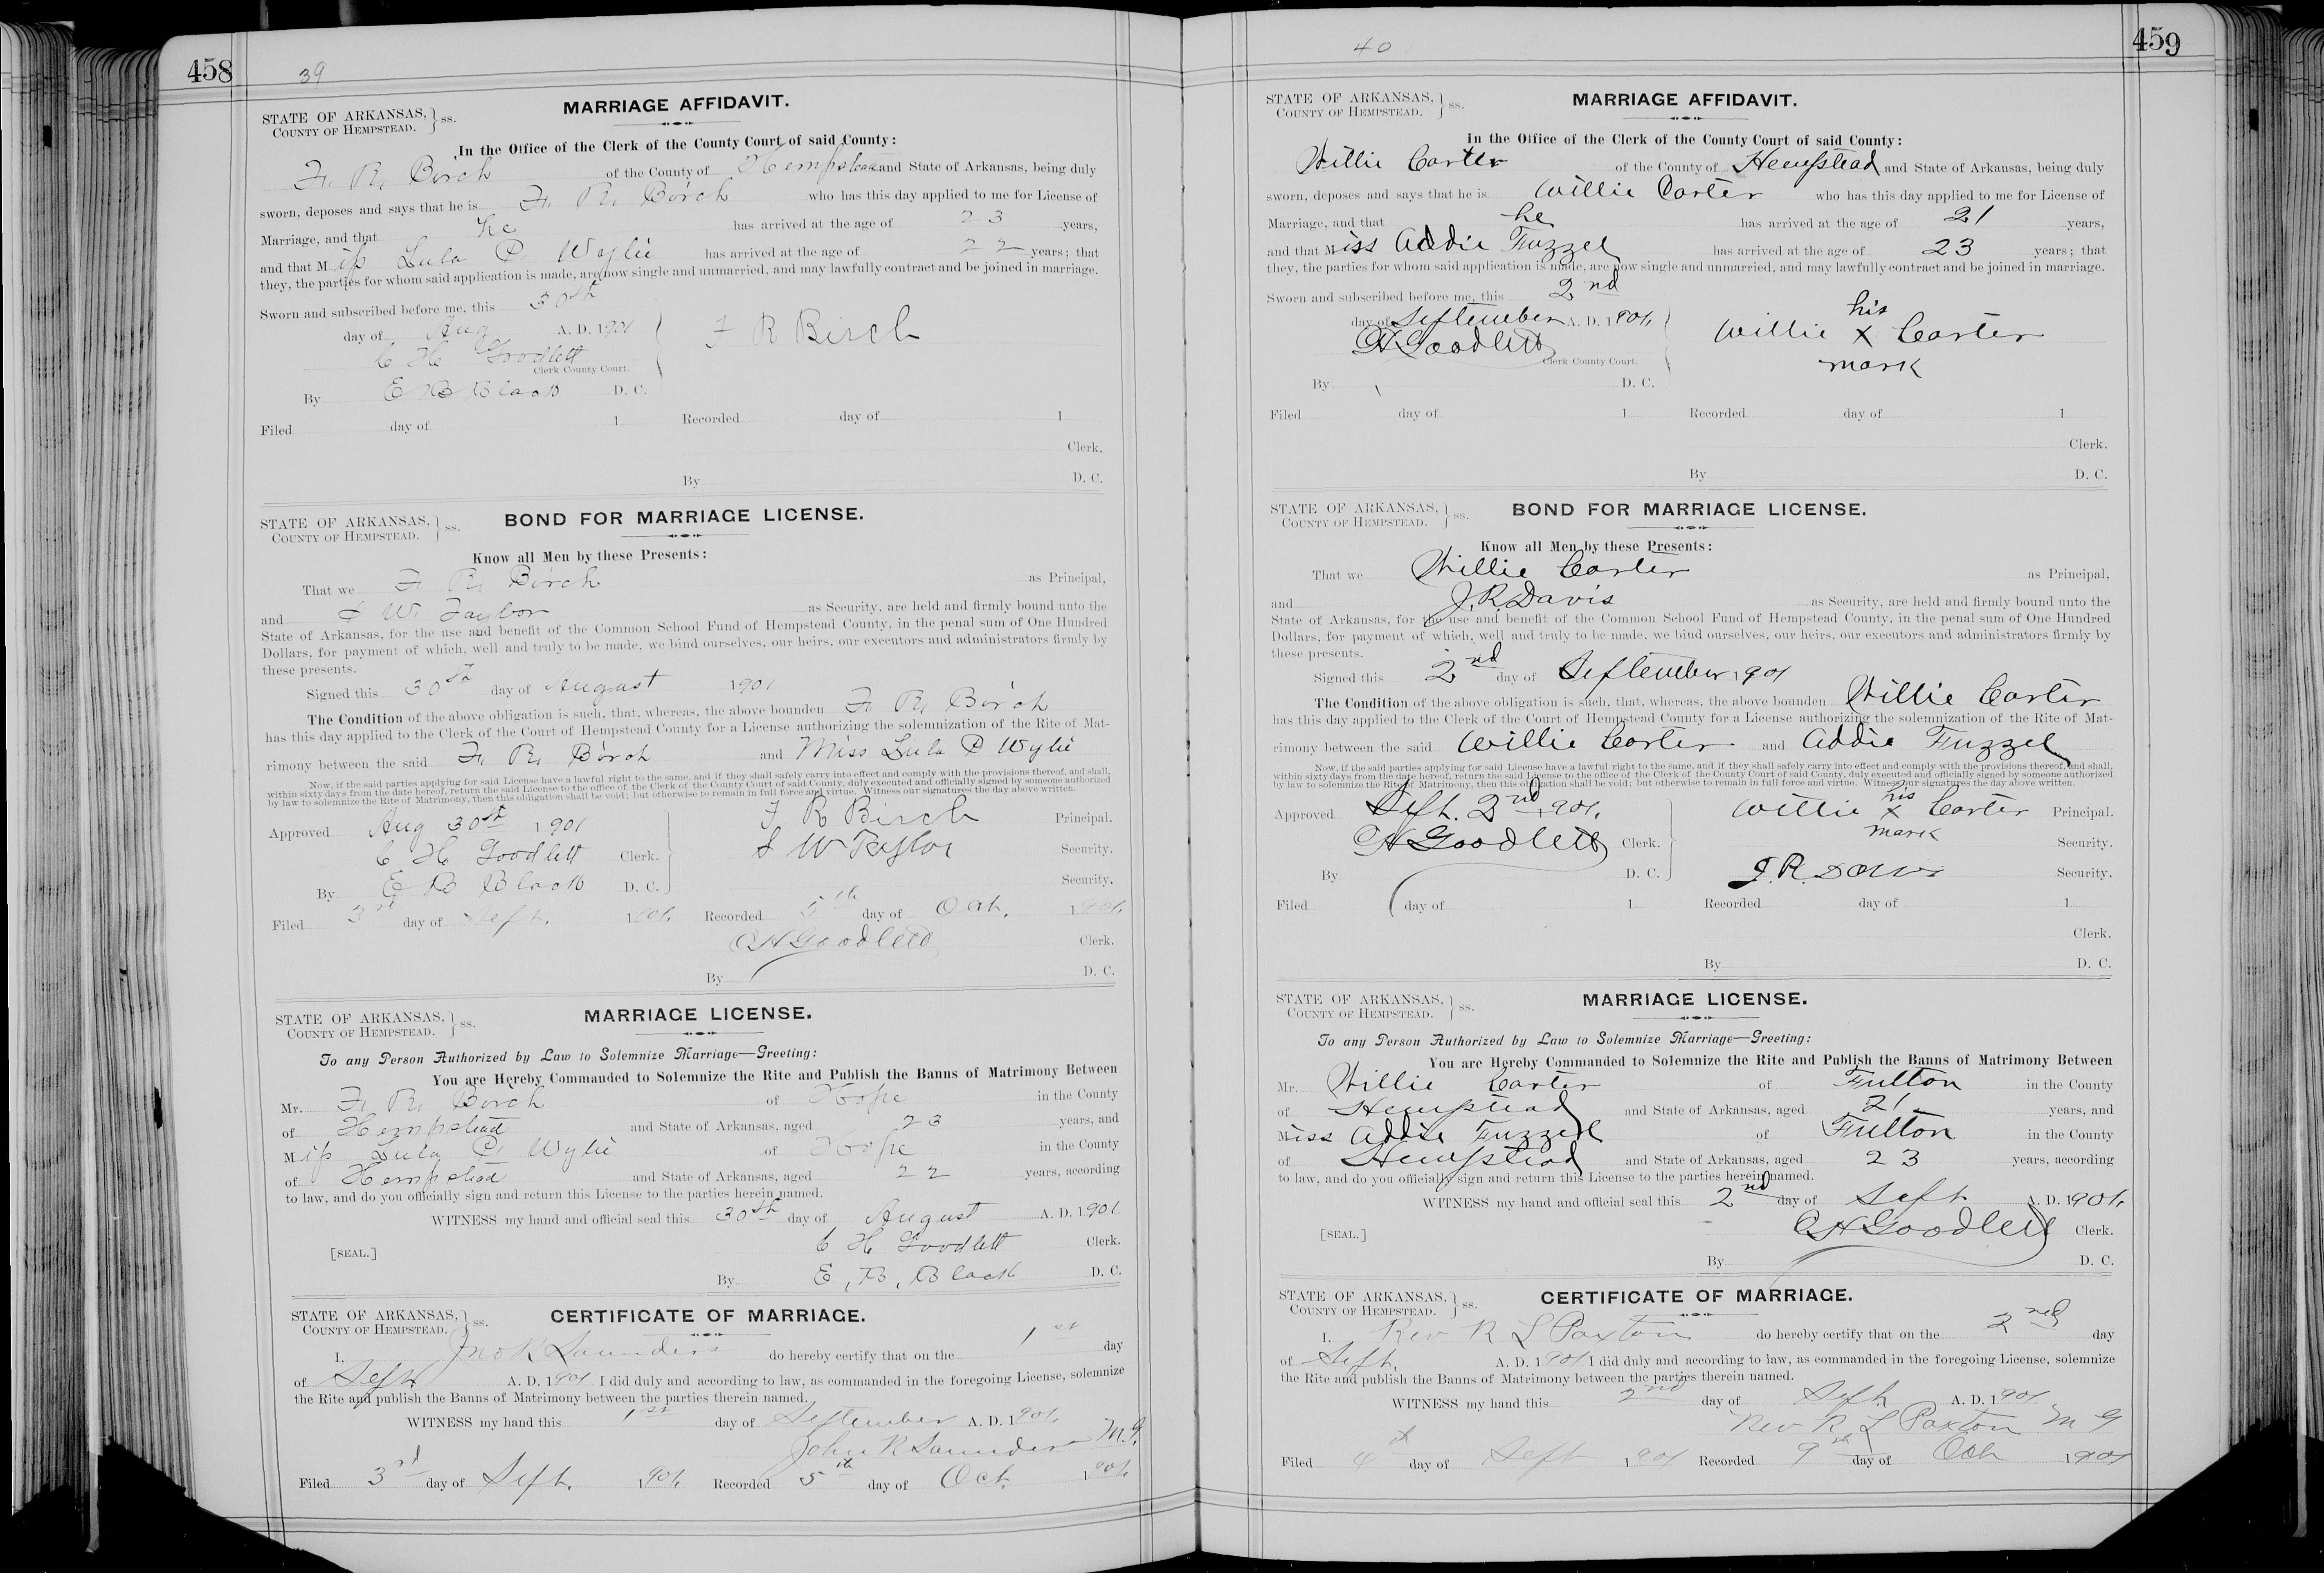 458
39
STATE OF ARKANSAS, } ss.
COUNTY OF HEMPSTEAD.
MARRIAGE AFFIDAVIT.
In the Office of the Clerk of the County Court of said County:
F. R. Birch of the County of Hempstead and State of Arkansas, being duly
sworn, deposes and says that he is F. R. Birch who has this day applied to me for License of
Marriage, and that he has arrived at the age of 23 years,
and that Miss Lula P Wylie has arrived at the age of 22 years; that
they, the parties for whom said application is made, are now single and unmarried, and may lawfully contract and be joined in marriage.
Sworn and subscribed before me, this 30th
day of Aug A. D. 1901
F R Birch
C H Goodlett
Clerk County Court.
By E B Black D. C.
Filed day of 1 Recorded day of 1
Clerk.
By D. C.
STATE OF ARKANSAS, } ss.
COUNTY OF HEMPSTEAD.
BOND FOR MARRIAGE LICENSE.
Know all Men by these Presents:
That we F. R. Birch as Principal,
and S W Taylor as Security, are held and firmly bound unto the
State of Arkansas, for the use and benefit of the Common School Fund of Hempstead County, in the penal sum of One Hundred
Dollars, for payment of which, well and truly to be made, we bind ourselves, our heirs, our executors and administrators firmly by
these presents.
Signed this 30th day of August 1901
The Condition of the above obligation is such, that, whereas, the above bounden F. R. Birch
has this day applied to the Clerk of the Court of Hempstead County for a License authorizing the solemnization of the Rite of Mat-
rimony between the said F. R. Birch and Miss Lula P Wylie
Now, if the said parties applying for said License have a lawful right to the same, and if they shall safely carry into effect and comply with the provisions thereof, and shall,
within sixty days from the date hereof, return the said License to the office of the Clerk of the County Court of said County, duly executed and officially signed by someone authorized
by law to solemnize the Rite of Matrimony, then this obligation shall be void; but otherwise to remain in full force and virtue. Witness our signatures the day above written.
Approved Aug 30th 1901 F R Birch Principal.
C H Goodlett Clerk. S W Taylor Security.
By E B Black D. C. Security.
Filed 3rd day of Sept. 1901. Recorded 5th day of Oct. 1901.
C H Goodlett Clerk.
By D. C.
STATE OF ARKANSAS, } ss.
COUNTY OF HEMPSTEAD.
MARRIAGE LICENSE.
To any Person Authorized by Law to Solemnize Marriage—Greeting:
You are Hereby Commanded to Solemnize the Rite and Publish the Banns of Matrimony Between
Mr. F. R. Birch of Hope in the County
of Hempstead and State of Arkansas, aged 23 years, and
Miss Lula P. Wylie of Hope in the County
of Hempstead and State of Arkansas, aged 22 years, according
to law, and do you officially sign and return this License to the parties herein named.
WITNESS my hand and official seal this 30th day of August A. D. 1901
[SEAL.] C H Goodlett Clerk.
By E. B. Black D. C.
STATE OF ARKANSAS, } ss.
COUNTY OF HEMPSTEAD.
CERTIFICATE OF MARRIAGE.
I, Jno R Saunders do hereby certify that on the 1st day
of Sept A. D. 1901 I did duly and according to law, as commanded in the foregoing License, solemnize
the Rite and publish the Banns of Matrimony between the parties therein named.
WITNESS my hand this 1st day of September A. D. 1901.
John R Saunders M.G.
Filed 3rd day of Sept. 1901. Recorded 5th day of Oct. 1901.
459
40
STATE OF ARKANSAS, } ss.
COUNTY OF HEMPSTEAD.
MARRIAGE AFFIDAVIT.
In the Office of the Clerk of the County Court of said County:
Willie Carter of the County of Hempstead and State of Arkansas, being duly
sworn, deposes and says that he is Willie Carter who has this day applied to me for License of
Marriage, and that he has arrived at the age of 21 years,
and that Miss Addie Fuzzel has arrived at the age of 23 years; that
they, the parties for whom said application is made, are now single and unmarried, and may lawfully contract and be joined in marriage.
Sworn and subscribed before me, this 2nd
day of September A. D. 1901.
his
Willie X Carter
mark
C H Goodlett
Clerk County Court.
By D. C.
Filed day of 1 Recorded day of 1
Clerk.
By D. C.
STATE OF ARKANSAS, } ss.
COUNTY OF HEMPSTEAD.
BOND FOR MARRIAGE LICENSE.
Know all Men by these Presents:
That we Willie Carter as Principal,
and J. R. Davis as Security, are held and firmly bound unto the
State of Arkansas, for the use and benefit of the Common School Fund of Hempstead County, in the penal sum of One Hundred
Dollars, for payment of which, well and truly to be made, we bind ourselves, our heirs, our executors and administrators firmly by
these presents.
Signed this 2nd day of September 1901
The Condition of the above obligation is such, that, whereas, the above bounden Willie Carter
has this day applied to the Clerk of the Court of Hempstead County for a License authorizing the solemnization of the Rite of Mat-
rimony between the said Willie Carter and Addie Fuzzel
Now, if the said parties applying for said License have a lawful right to the same, and if they shall safely carry into effect and comply with the provisions thereof, and shall,
within sixty days from the date hereof, return the said License to the office of the Clerk of the County Court of said County, duly executed and officially signed by someone authorized
by law to solemnize the Rite of Matrimony, then this obligation shall be void; but otherwise to remain in full force and virtue. Witness our signatures the day above written.
his
Approved Sept. 2nd 1901. Willie X Carter Principal.
mark
C H Goodlett Clerk. Security.
By D. C. J. R. Davis Security.
Filed day of 1 Recorded day of 1
Clerk.
By D. C.
STATE OF ARKANSAS, } ss.
COUNTY OF HEMPSTEAD.
MARRIAGE LICENSE.
To any Person Authorized by Law to Solemnize Marriage—Greeting:
You are Hereby Commanded to Solemnize the Rite and Publish the Banns of Matrimony Between
Mr. Willie Carter of Fulton in the County
of Hempstead and State of Arkansas, aged 21 years, and
Miss Addie Fuzzel of Fulton in the County
of Hempstead and State of Arkansas, aged 23 years, according
to law, and do you officially sign and return this License to the parties herein named.
WITNESS my hand and official seal this 2nd day of Sept A. D. 1901.
[SEAL.] C H Goodlett Clerk.
By D. C.
STATE OF ARKANSAS, } ss.
COUNTY OF HEMPSTEAD.
CERTIFICATE OF MARRIAGE.
I, Rev R L Paxton do hereby certify that on the 2nd day
of Sept. A. D. 1901 I did duly and according to law, as commanded in the foregoing License, solemnize
the Rite and publish the Banns of Matrimony between the parties therein named.
WITNESS my hand this 2nd day of Sept. A. D. 1901
Rev R. L Paxton M G
Filed 4th day of Sept 1901 Recorded 9th day of Oct 1901